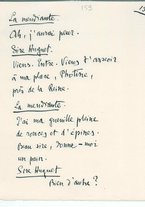 159
La mendiante.
Ah, j'aurai peur.
Sire Huguet.
Viens. Entre. Viens t'asseoir
à ma place, Photine,
près de la Reine.
La mendiante.
J'ai ma guenille pleine
de ronces et d'épines.
Bon sire, donne-moi
un pain.
Sire Huguet
Rien d'autre ?